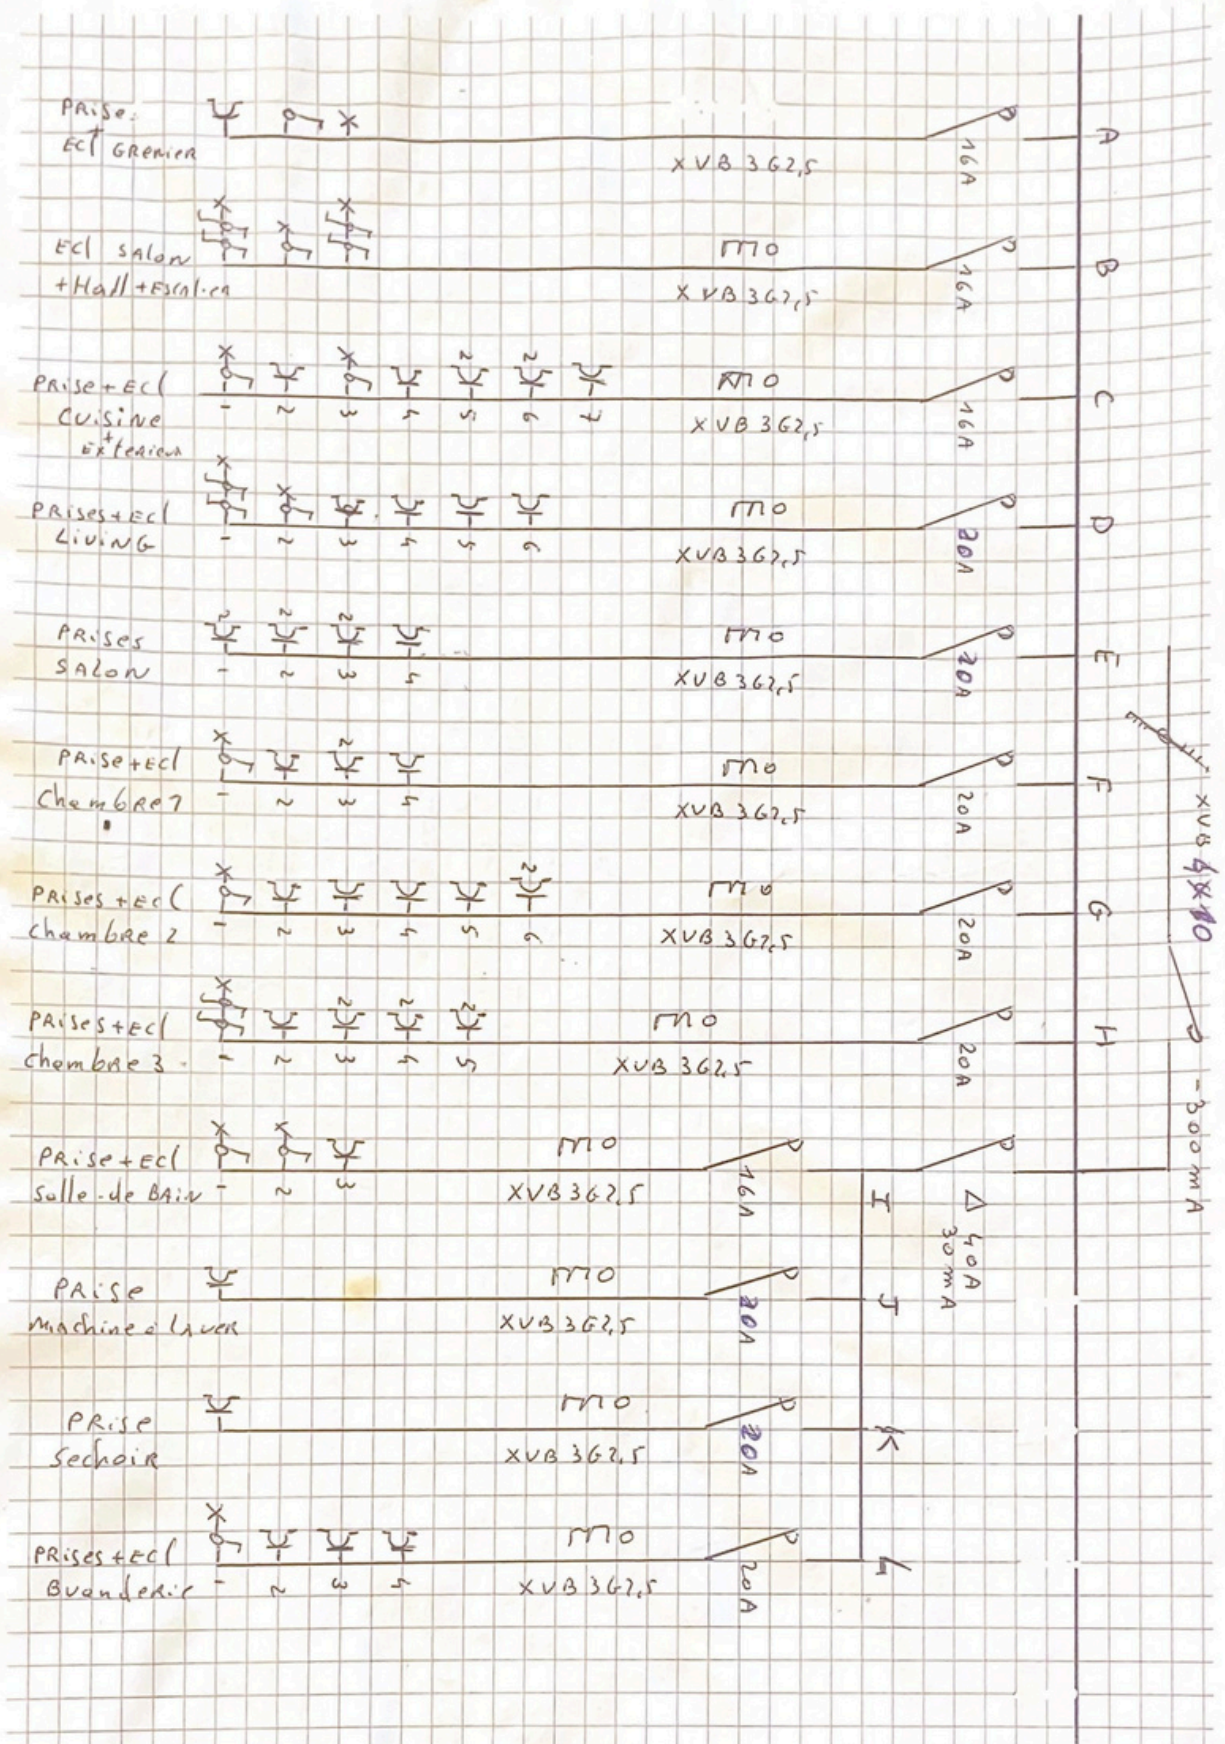 PRise
+
Ecl GRenier
XVB 3G2,5
16A
A
Ecl SAlon
+Hall+Escalier
XVB 3G2,5
16A
B
PRise+Ecl
CuisiNe
+
ExterieuR
1 2 3 4 5 6 7
2 2
XVB 3G2,5
16A
C
PRises+Ecl
LiviNG
1 2 3 4 5 6
XVB 3G2,5
20A
D
PRises
SALON
2 2 2
1 2 3 4
XVB 3G2,5
20A
E
PRise+Ecl
Chambre 1
2
1 2 3 4
XVB 3G2,5
20A
F
PRises+Ecl
Chambre 2
2
1 2 3 4 5 6
XVB 3G2,5
20A
G
PRises+Ecl
Chambre 3
2 2 2
1 2 3 4 5
XVB 3G2,5
20A
H
XVB 4X10
-300mA
PRise+Ecl
Salle-de BAiN
1 2 3
XVB 3G2,5
16A
I
Δ 40A
30mA
PRise
Machine à LAveR
XVB 3G2,5
20A
J
PRise
SechoiR
XVB 3G2,5
20A
K
PRises+Ecl
BuandeRie
1 2 3 4
XVB 3G2,5
20A
L